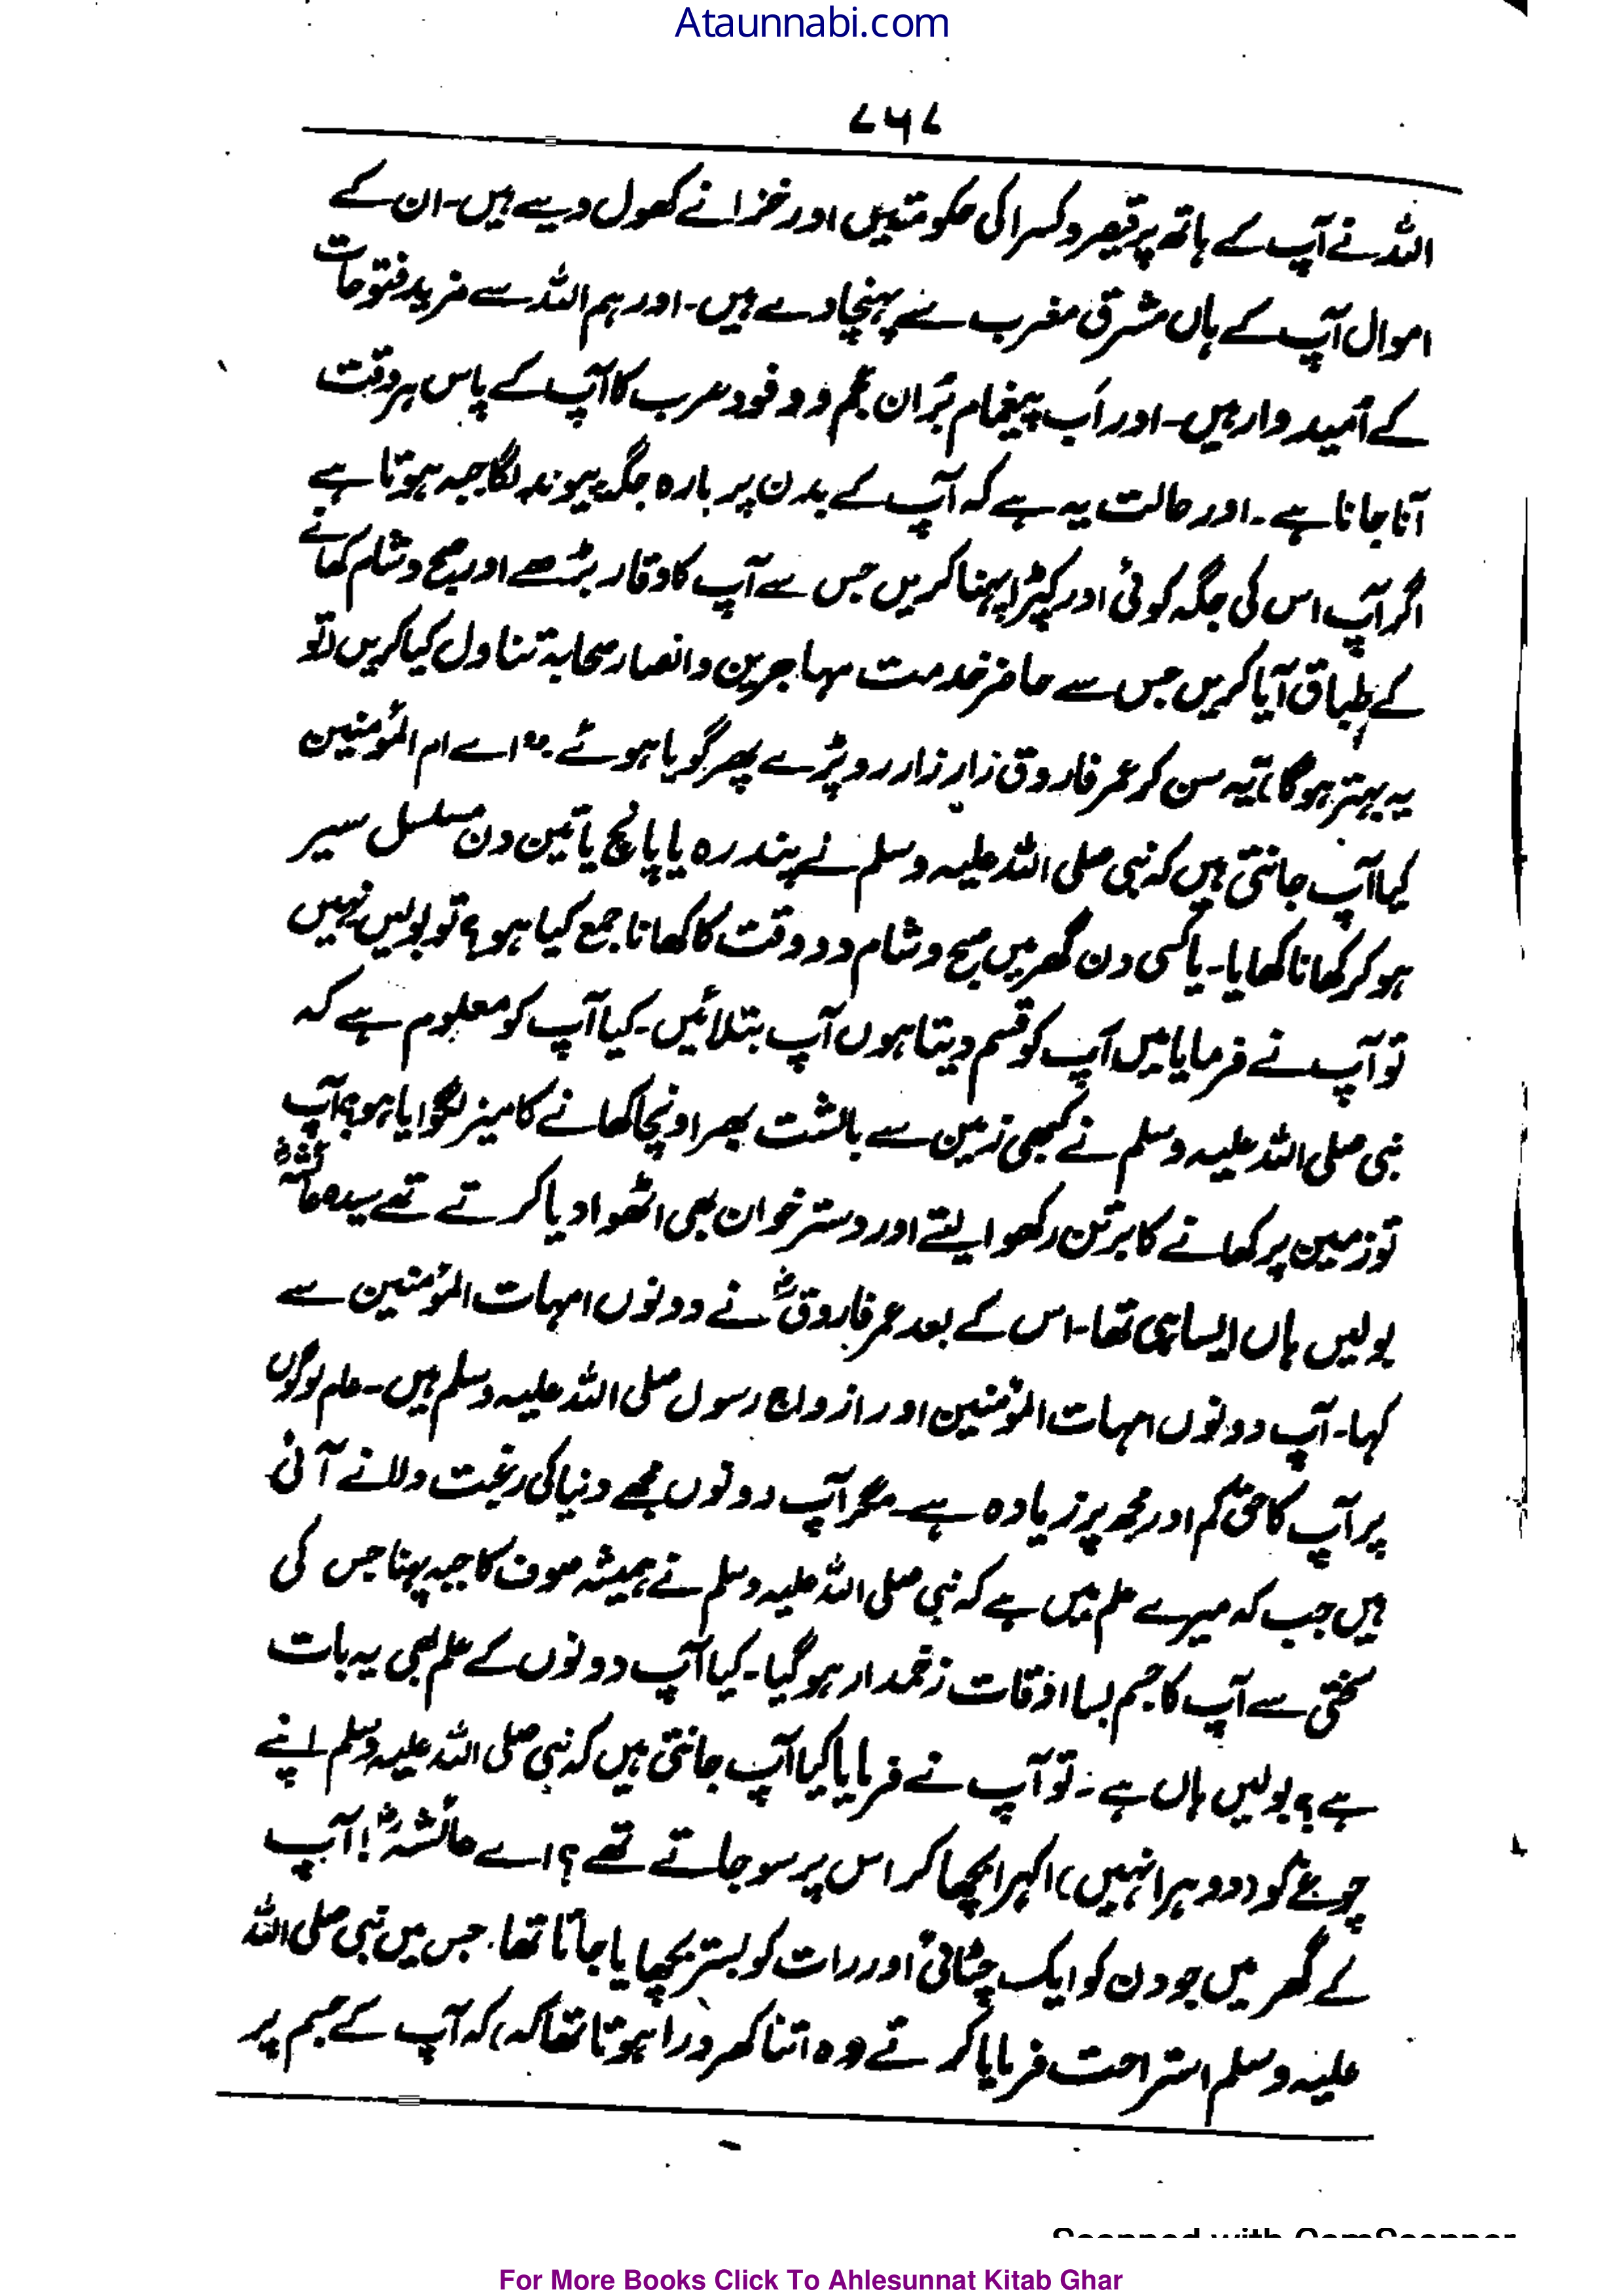 Ataunnabi.com
۷۵۷
اللہ نے آپ کے ہاتھ پر قیصر و کسرا کی حکومتیں اور خزانے کھول دیے ہیں۔ ان کے
اموال آپ کے ہاں مشرق مغرب سے پہنچا دے ہیں۔ اور ہم اللہ سے مزید فتوحات
کے اُمیدوار ہیں۔ اور اَب پیغام بَران عجم و وفود عرب کا آپ کے پاس ہر وقت
آنا جانا ہے۔ اور حالت یہ ہے کہ آپ کے بدن پر بارہ جگہ پیوند لگا جبہ ہوتا ہے
اگر آپ اس کی جگہ کوئی اور کپڑا پہنا کریں جس سے آپ کا وقار بڑھے اور صبح و شام کھانے
کے طباق آیا کریں جس سے حاضر خدمت مہاجرین و انصار صحابہ تناول کیا کریں (تو
یہ بہتر ہو گا) یہ سن کر عمر فاروق زار زار رو پڑے پھر گویا ہوئے۔ ”اے ام المؤمنین
کیا آپ جانتی ہیں کہ نبی صلی اللہ علیہ وسلم نے پندرہ یا پانچ یا تین دن مسلسل سیر
ہو کر کھانا کھایا۔ یا کسی دن گھر میں صبح و شام دو وقت کا کھانا جمع کیا ہو؟ تو بولیں نہیں
تو آپ نے فرمایا میں آپ کو قسم دیتا ہوں آپ بتلائیں۔ کیا آپ کو معلوم ہے کہ
نبی صلی اللہ علیہ وسلم نے کبھی زمین سے بالشت بھر اونچا کھانے کا میز لگوایا ہو؟ آپ
تو زمین پر کھانے کا برتن رکھوا لیتے اور دستر خوان بھی اٹھوا دیا کرتے تھے سیدہ عائشہؓ
بولیں ہاں ایسا ہی تھا۔ اس کے بعد عمر فاروقؓ نے دونوں امہات المؤمنین سے
کہا۔ آپ دونوں امہات المؤمنین اور ازواج رسول صلی اللہ علیہ وسلم ہیں۔ عام لوگوں
پر آپ کا حق کم اور مجھ پر زیادہ ہے۔ مگر آپ دونوں مجھے دنیا کی رغبت دلانے آئی
ہیں جب کہ میرے علم میں ہے کہ نبی صلی اللہ علیہ وسلم نے ہمیشہ صوف کا جبہ پہنا جس کی
سختی سے آپ کا جسم بسا اوقات زخمدار ہو گیا۔ کیا آپ دونوں کے علم بھی یہ بات
ہے؟ بولیں ہاں ہے۔ تو آپ نے فرمایا کیا آپ جانتی ہیں کہ نبی صلی اللہ علیہ وسلم اپنے
چوغے کو (دوہرا نہیں) اکہرا بچھا کر اس پر سو جاتے تھے؟ اے عائشہؓ! آپ
کے گھر میں جو دن کو ایک چٹائی اور رات کو بستر بچھایا جاتا تھا۔ جس میں نبی صلی اللہ
علیہ وسلم استراحت فرمایا کرتے وہ اتنا کھردرا ہوتا تھا کہ، کہ آپ کے جسم پر
Scanned with CamScanner
For More Books Click To Ahlesunnat Kitab Ghar